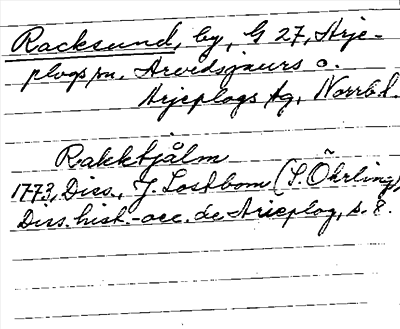 Racksund, by, G 27, Arje-
plogs sn. Arvidsjaurs o.
Arjeplogs tg, Norrb. l.
Rakktjålm
1773, Diss., J. Lostbom (S. Öhrling),
Diss. hist.-oec. de Arieplog, s. 8.